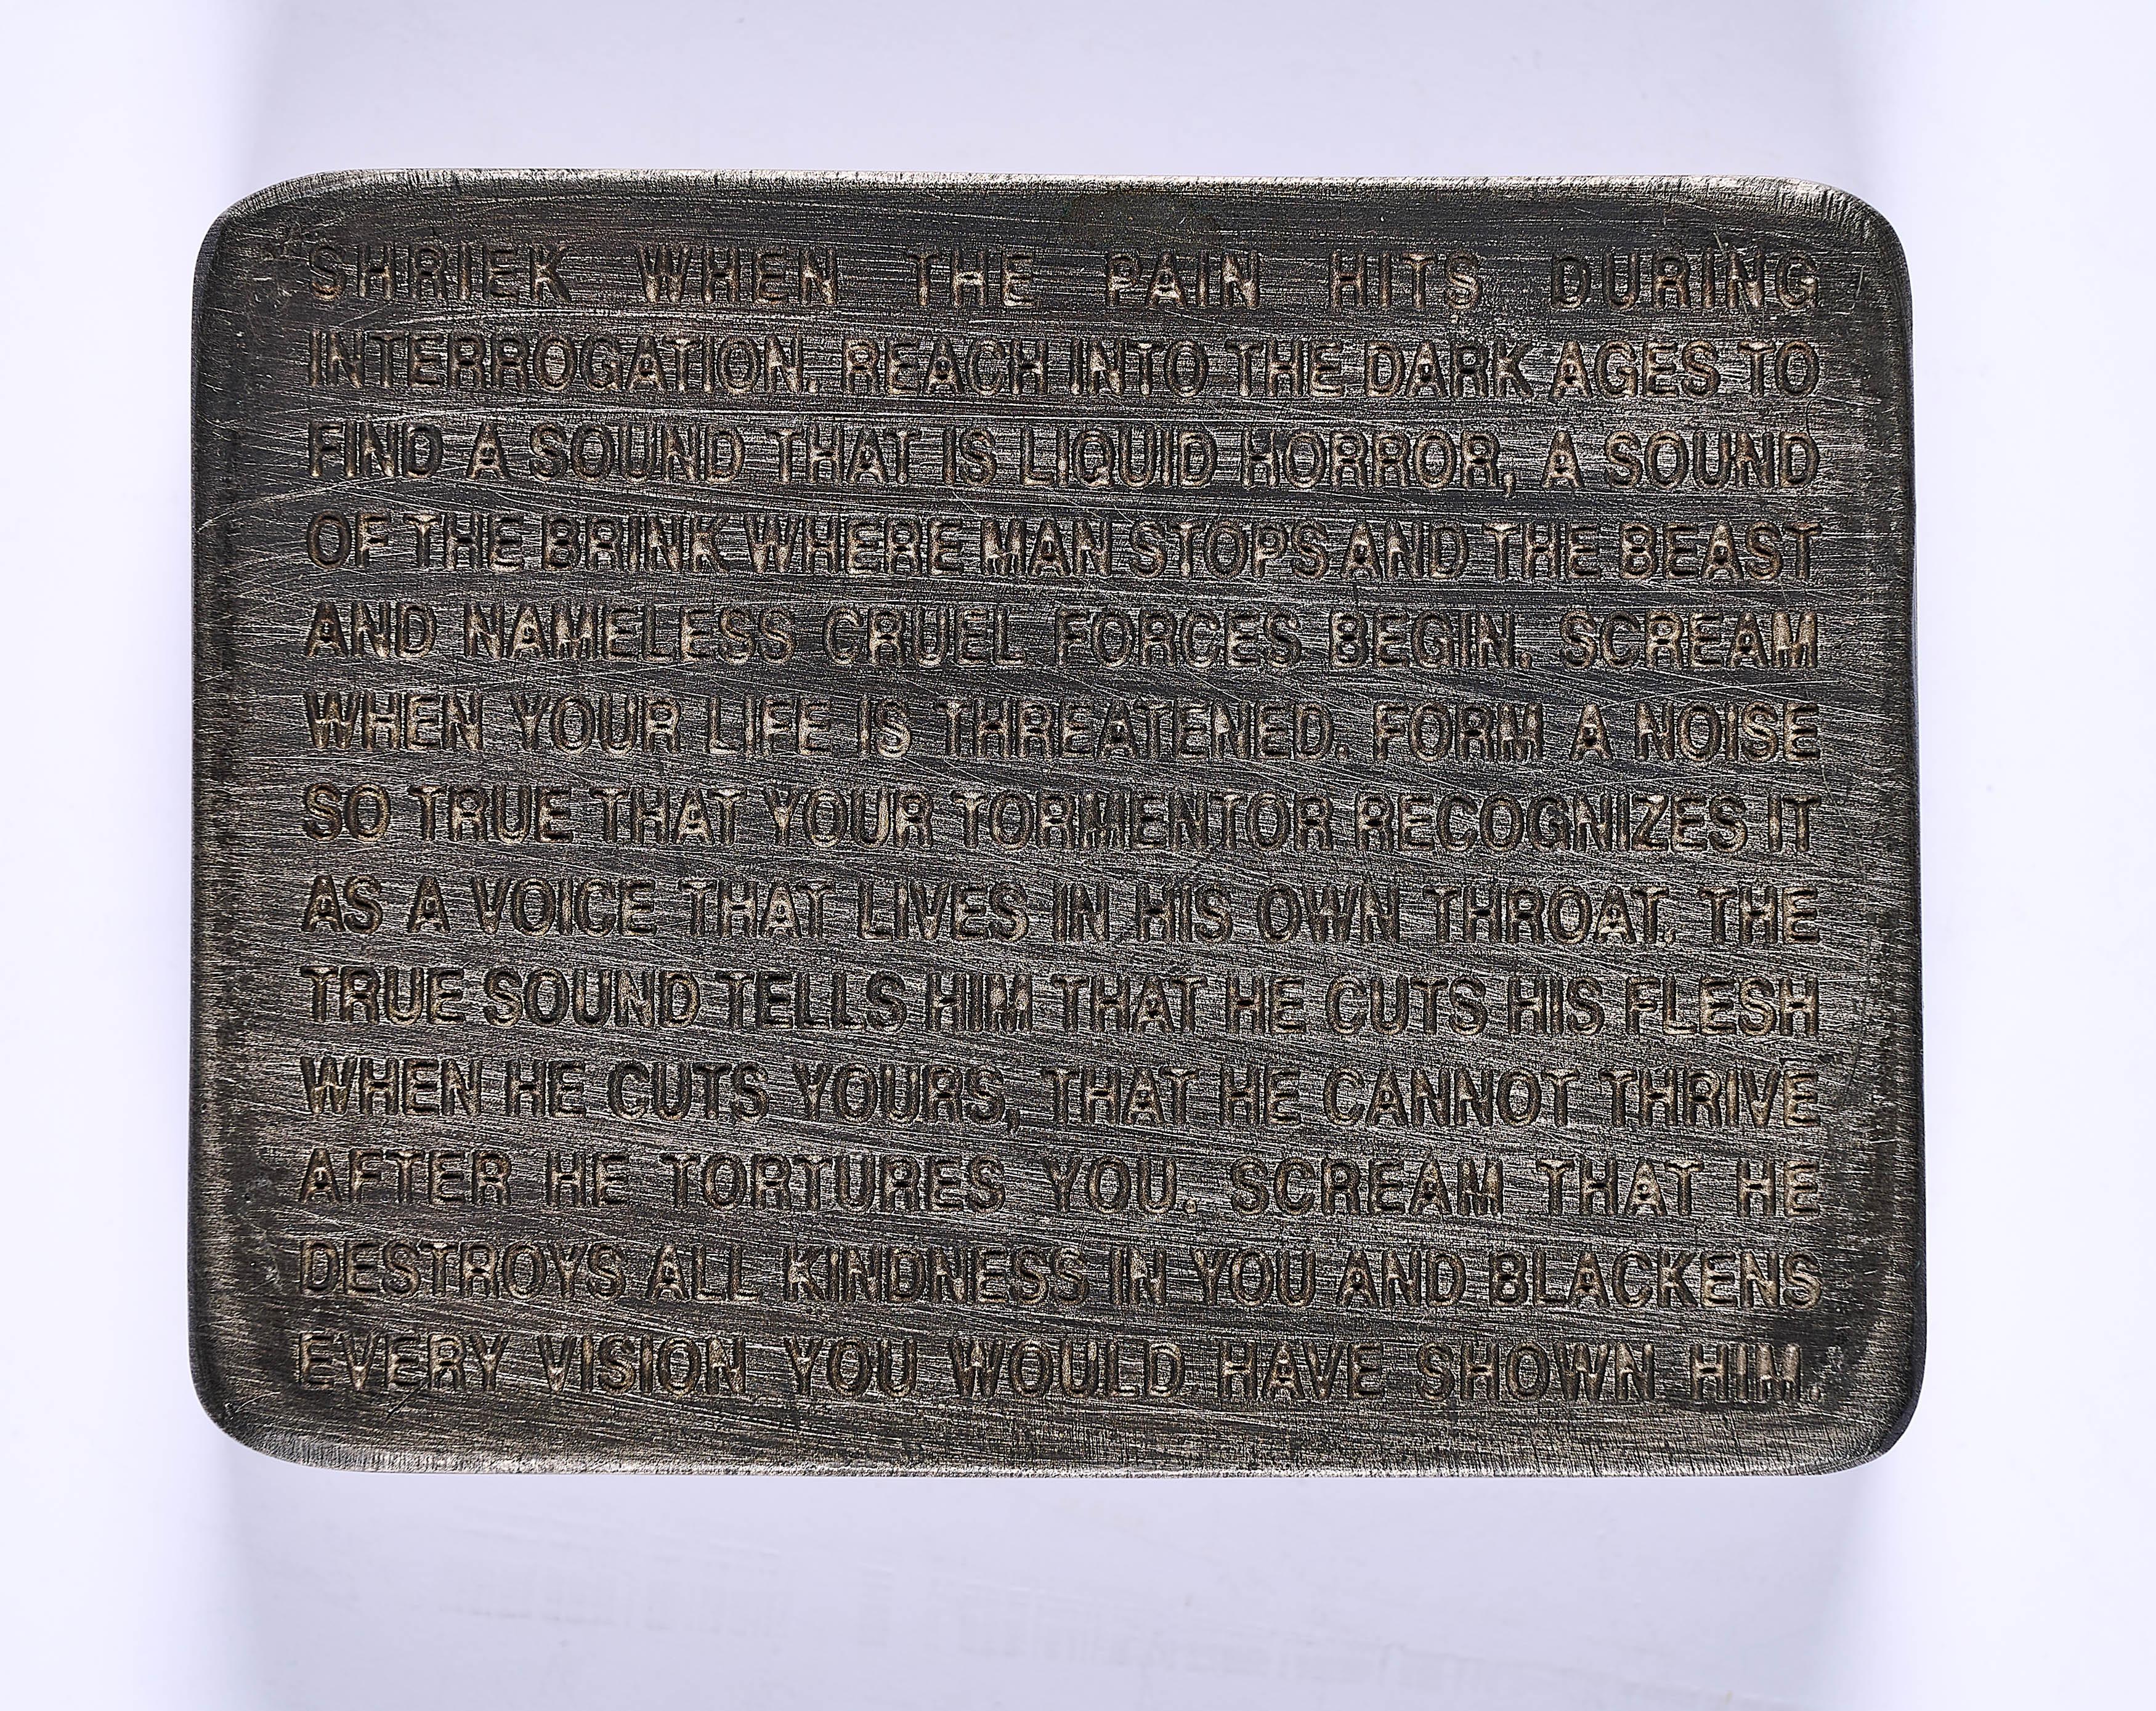 SHRIEK WHEN THE PAIN HITS DURING
INTERROGATION. REACH INTO THE DARK AGES TO
FIND A SOUND THAT IS LIQUID HORROR, A SOUND
OF THE BRINK WHERE MAN STOPS AND THE BEAST
AND NAMELESS CRUEL FORCES BEGIN. SCREAM
WHEN YOUR LIFE IS THREATENED. FORM A NOISE
SO TRUE THAT YOUR TORMENTOR RECOGNIZES IT
AS A VOICE THAT LIVES IN HIS OWN THROAT. THE
TRUE SOUND TELLS HIM THAT HE CUTS HIS FLESH
WHEN HE CUTS YOURS, THAT HE CANNOT THRIVE
AFTER HE TORTURES YOU. SCREAM THAT HE
DESTROYS ALL KINDNESS IN YOU AND BLACKENS
EVERY VISION YOU WOULD HAVE SHOWN HIM.